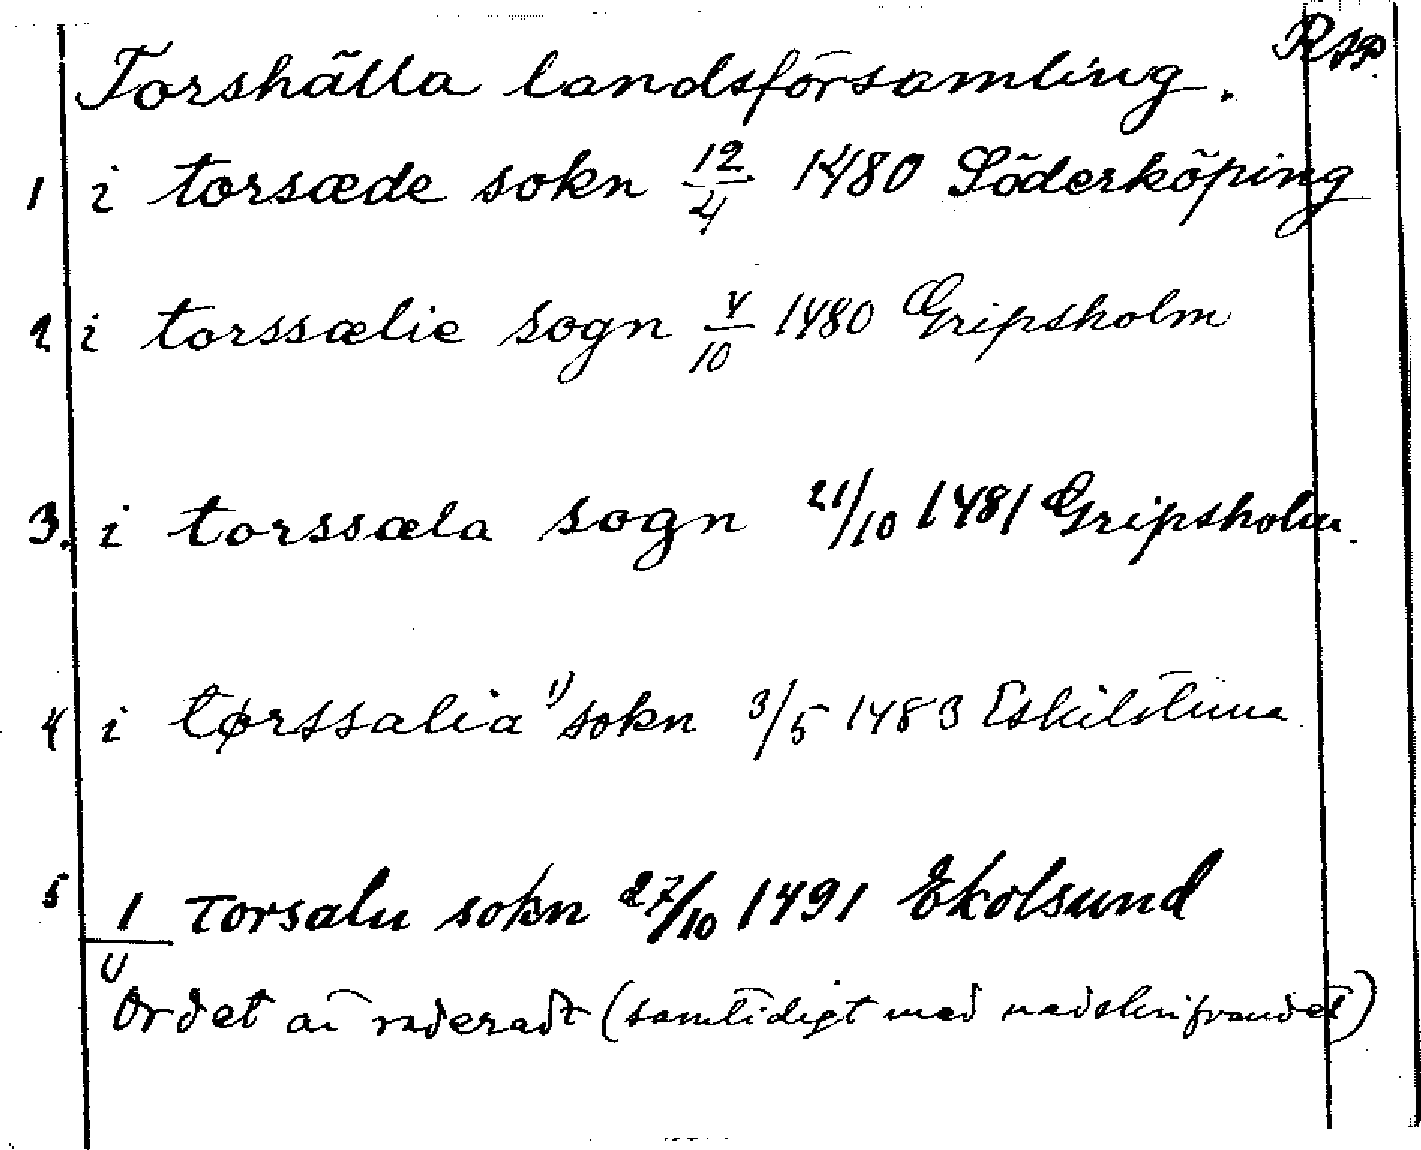 RAP.
Torshälla landsförsamling.
1 i torsæde sokn 12/4 1480 Söderköping
2 i torssælie sogn 4/10 1480 Gripsholm
3. i torssæla sogn 21/10 1481 Gripsholm.
4 i tørssalia 1) sokn 3/5 1483 Eskilstuna
5 I Torsalu sokn 27/10 1491 Ekolsund
1) Ordet är raderadt (samtidigt med nedskrifvandet)